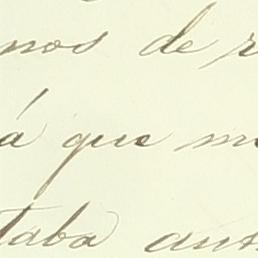 nos de r
á que m
taba aus